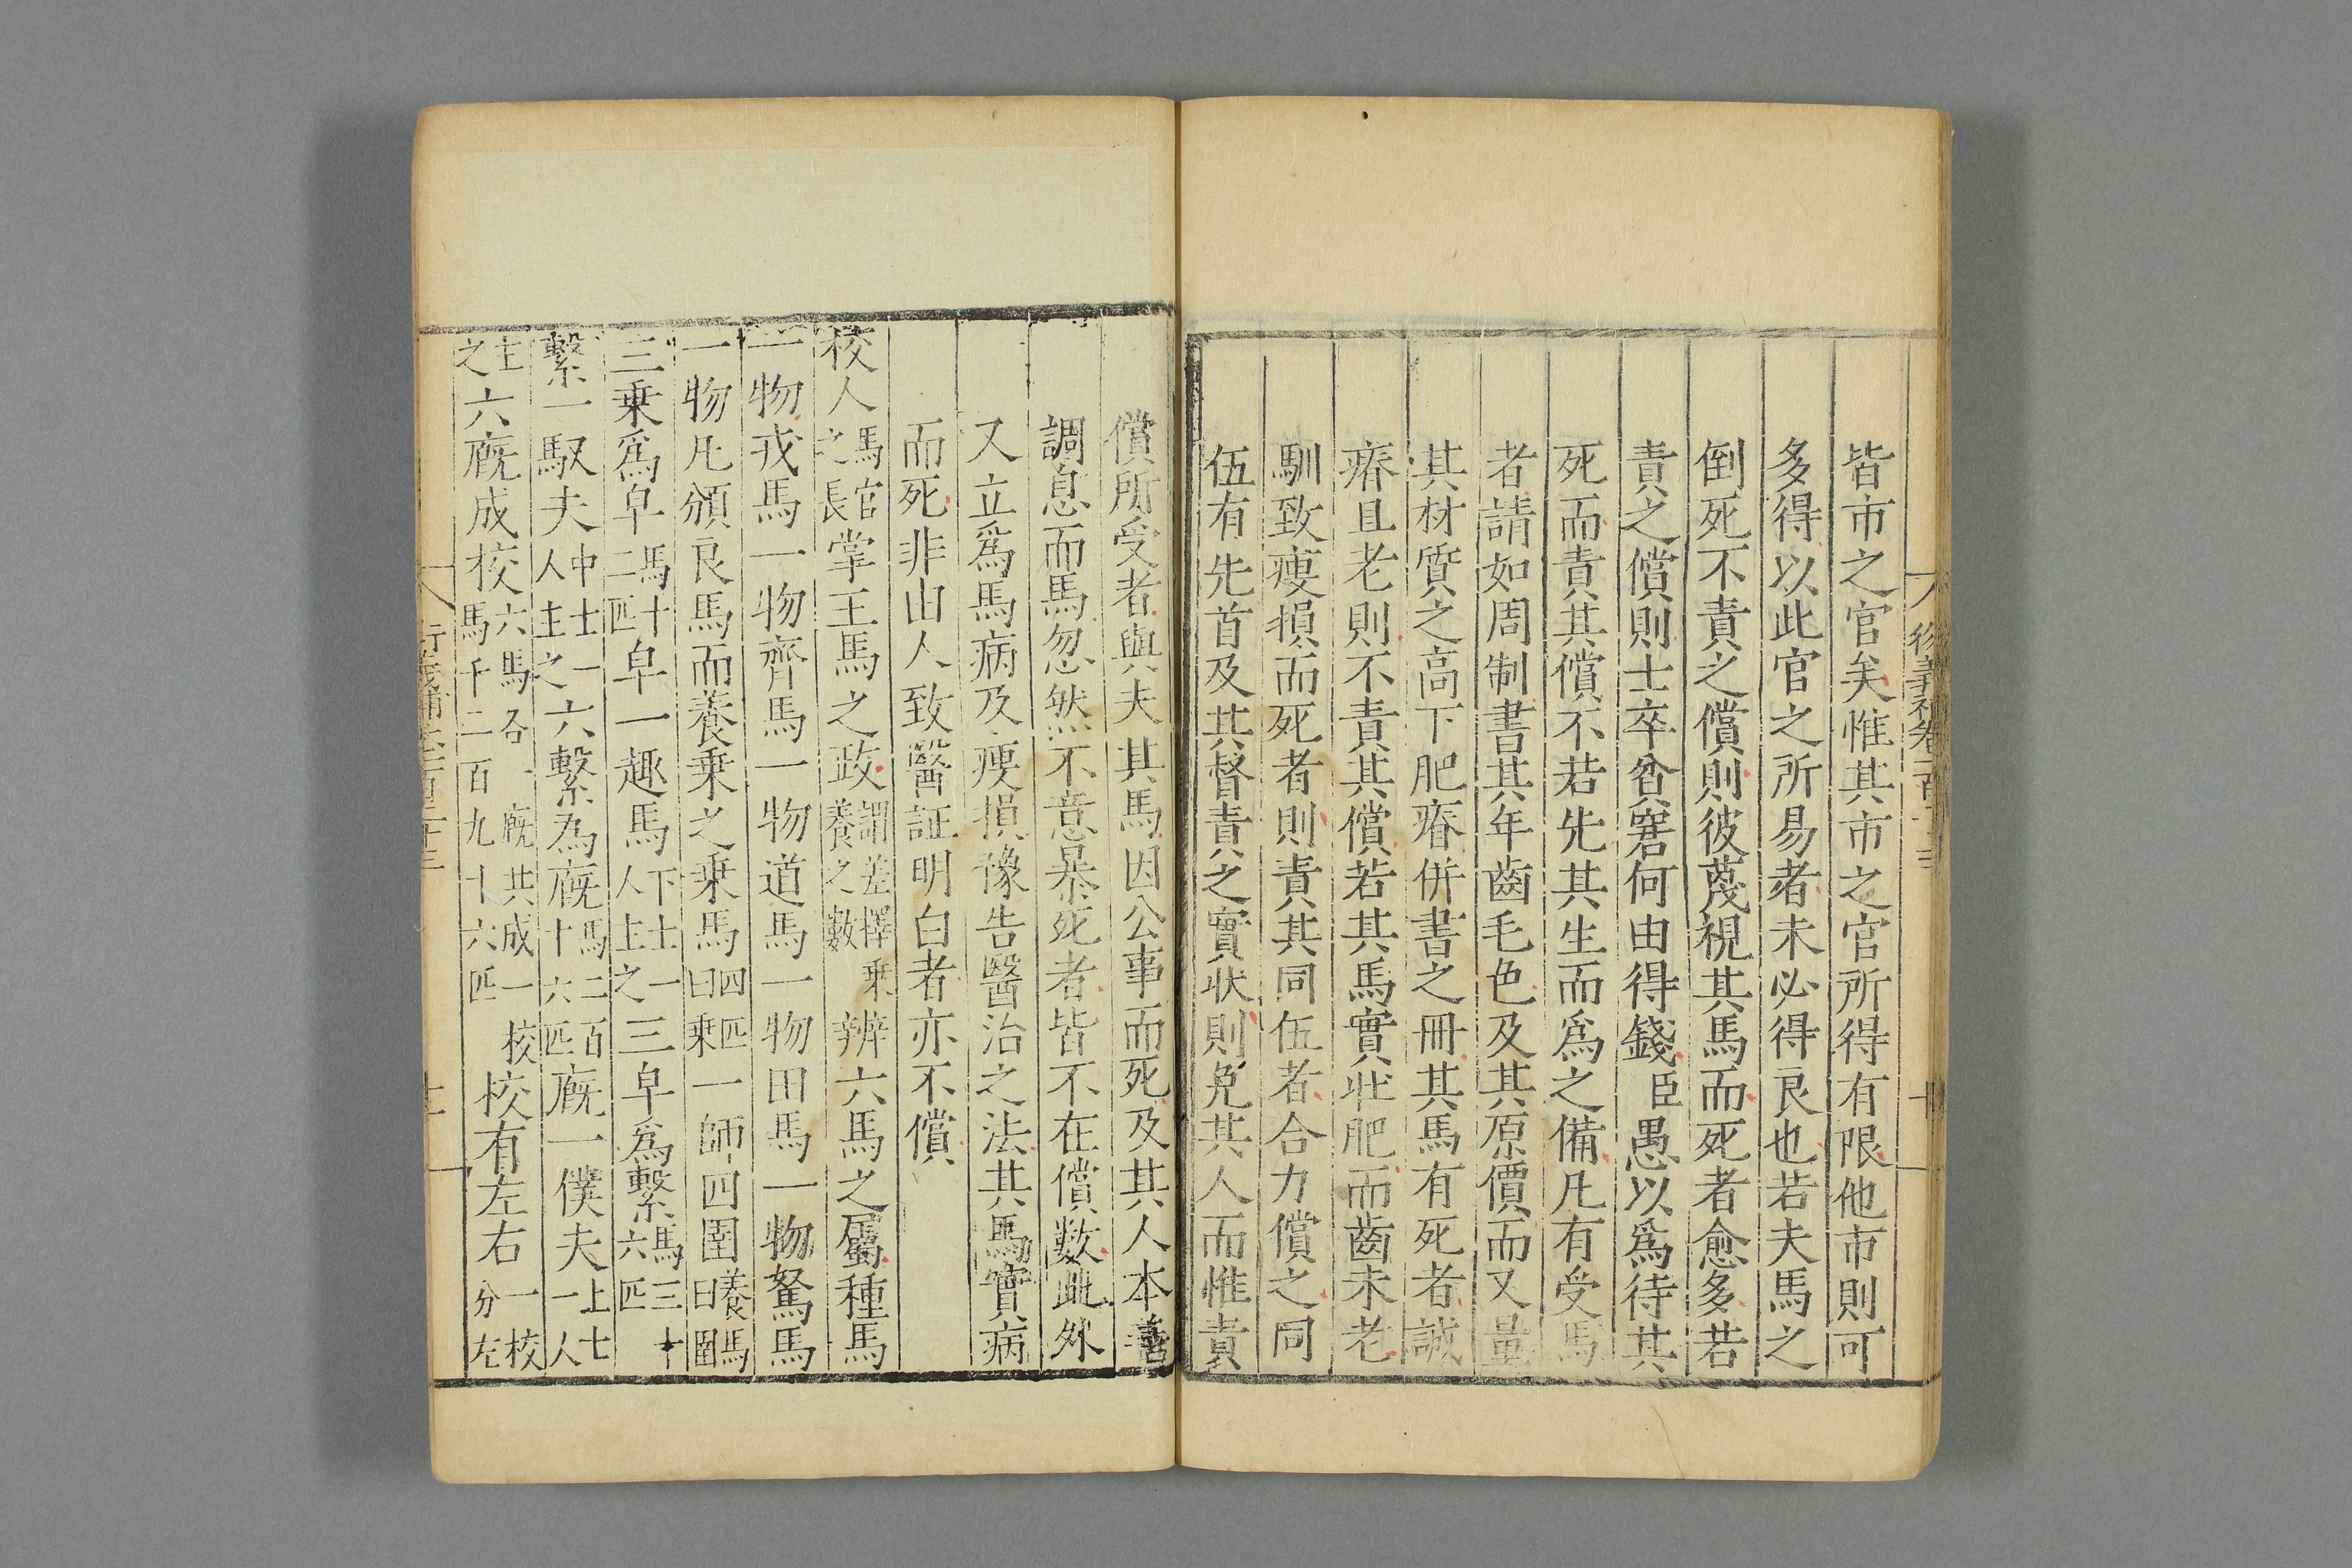 皆市之官矣惟其市之官所得有限他市則可
多得以此官之所易者未必得良也若夫馬之
倒死不責之償則彼蔑視其馬而死者愈多若
責之償則士卒貧窘何由得錢臣愚以爲待其
死而責其償不若先其生而爲之備凡有受馬
者請如周制書其年齒毛色及其原價而又量
其材質之高下肥瘠併書之冊其馬有死者誠
瘠且老則不責其償若其馬實壯肥而齒未老
馴致瘦損而死者則責其同伍者合力償之同
伍有先首及其督責之實狀則免其人而惟責
償所受者與夫其馬因公事而死及其人本善
調息而馬忽然不意暴死者皆不在償數此外
又立爲馬病及瘦損豫告醫治之法其馬實病
而死非由人致醫証明白者亦不償
校人馬官之長掌王馬之政謂差擇乗養之數辨六馬之屬種馬
一物戎馬一物齊馬一物道馬一物田馬一物駑馬
一物凡頒良馬而養乗之乗馬四匹曰乗一師四圉養馬曰圉
三乗爲皁馬十二匹皁一趣馬下士一人主之三皁爲繫馬三十六匹
繫一馭夫中士一人主之六繫為廐馬二百十六匹廐一僕夫上士一人
主之六廐成校六馬各一廐共成一校馬千二百九十六匹校有左右一校分左